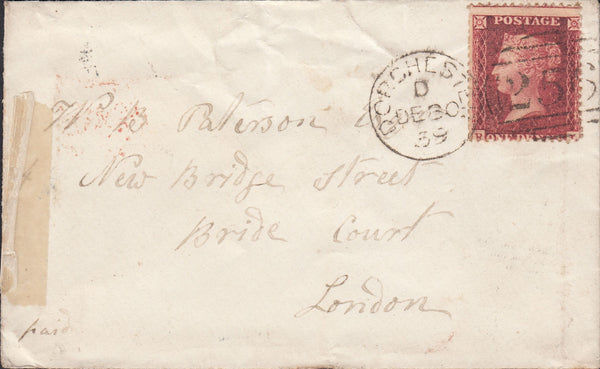 POSTAGE
DORCHESTE
D
DE 30
59
25
Wm B Paterson
New Bridge Street
Bride Court
London
paid